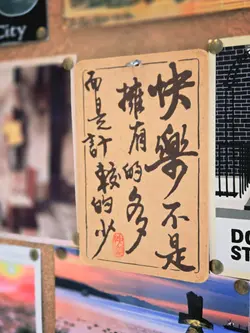 快樂不是
擁有的多
而是計
較的少
City
DO
ST